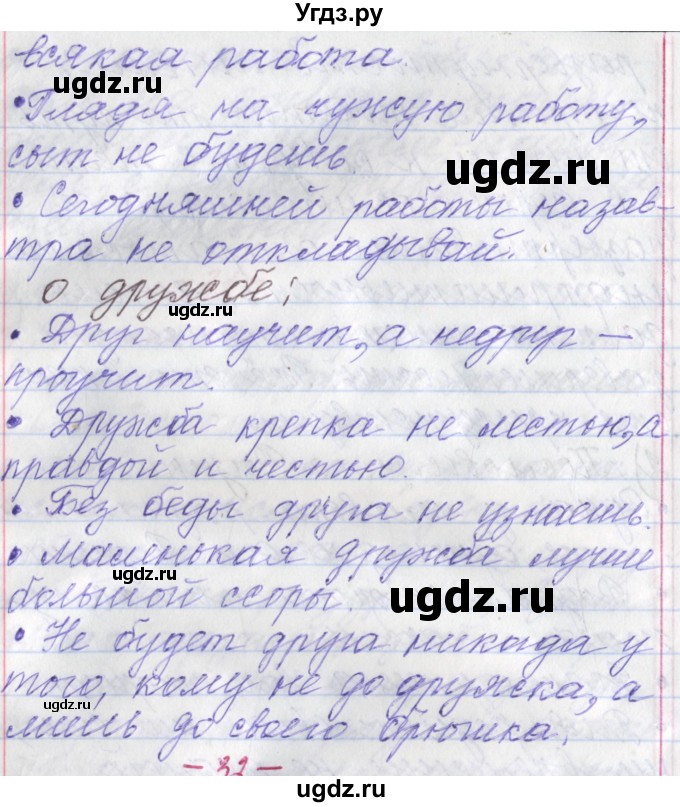 Угдз.ру
всякая работа.
• Глядя на чужую работу,
сыт не будешь.
• Сегодняшней работы назав-
тра не откладывай.
о дружбе:
• Друг научит, а недруг –
проучит.
• Дружба крепка не лестью, а
правдой и честью.
• Без беды друга не узнаешь.
• Маленькая дружба лучше
большой ссоры.
• Не будет друга никогда у
того, кому не до дружка, а
лишь до своего брюшка.
– 32 –
ugdz.ru
ugdz.ru
ugdz.ru
ugdz.ru
ugdz.ru
ugdz.ru
ugdz.ru
ugdz.ru